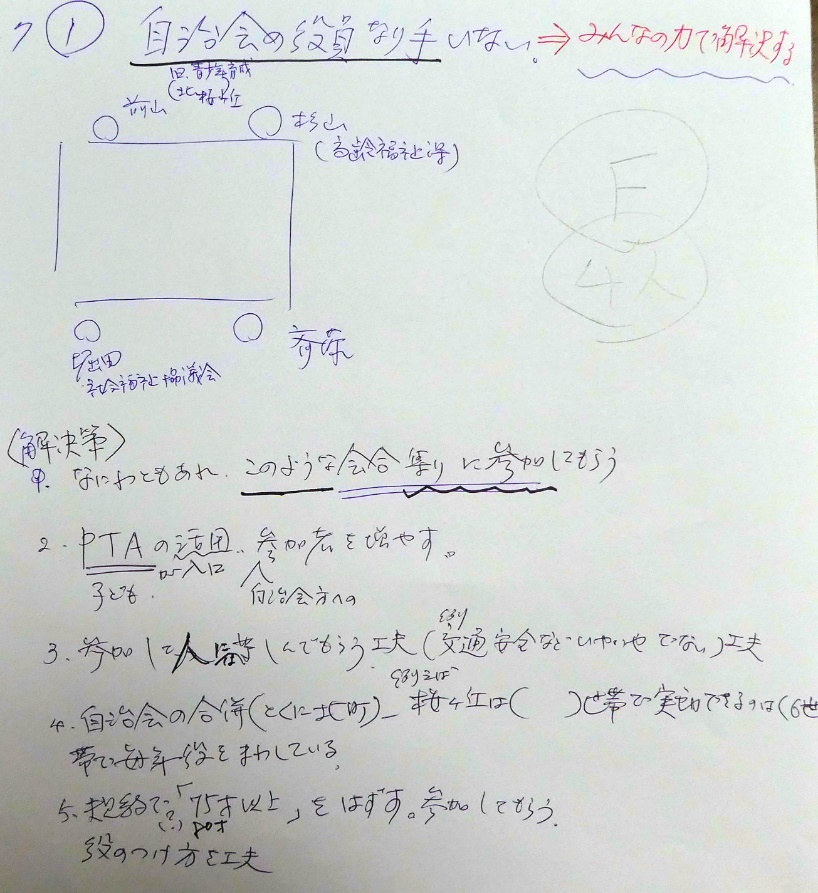 ① 自治会の役員なり手いない。⇒みんなの力で解決する
旧、青少年育成
(北桜ヶ丘)
前山
杉山
(高齢福祉課)
F
4人
堀田
社会福祉協議会
斉藤
(解決策)
1. なにわともあれ、このような会合集りに参加してもらう
2. PTAの活用、参加者を増やす。
子ども が入口 自治会方への
3. 参加して人 楽しんでもらう工夫(交通安全などいやいやでない)工夫
例えば
4. 自治会の合併(とくに北町)_ 桜ヶ丘は( )世帯で実動できるのは(6世
帯で毎年役をまわしている。
5. 規約で「75才以上」をはずす。参加してもらう。
(?) 80才
役のつけ方を工夫